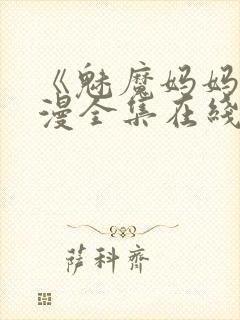 《魅魔妈妈
漫全集在线
萨科齐